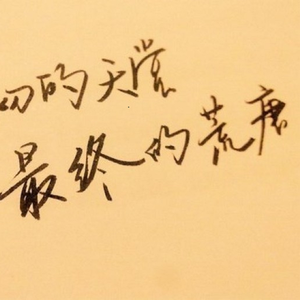 初的天堂
最终的荒唐